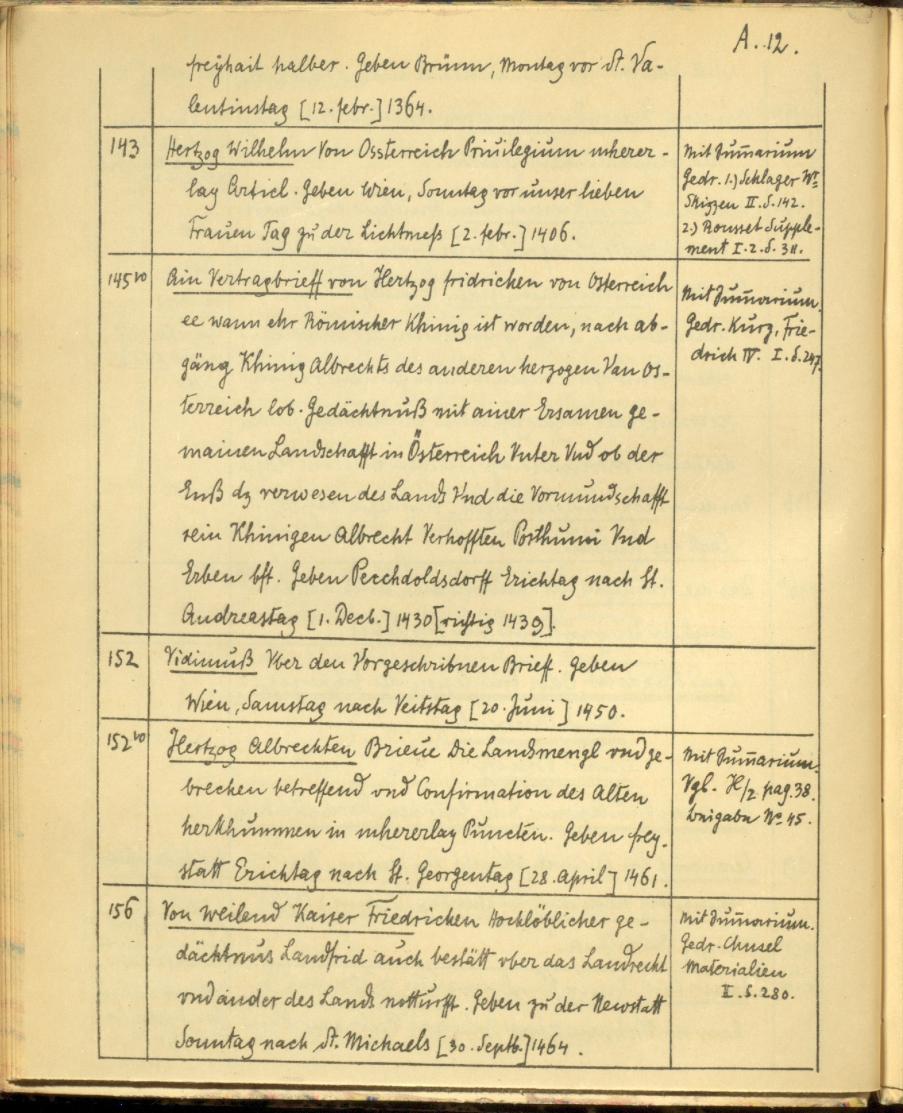 A. 12.
freyhait halber. Geben Brünn, Montag vor St. Va-
lentinstag [12. febr.] 1364.
143
Hertzog Wilhelm Von Ossterreich Priuilegium mherer-
lay Articl. Geben Wien, Sonntag vor unser lieben
Frauen Tag zu der Lichtmeß [2. febr.] 1406.
Mit Sum̄arium
Gedr. 1.) Schlager Wr
Skizzen II. S. 142.
2.) Rousset Supple-
ment I. 2. S. 311.
145vo
Ain Vertragbrieff von Hertzog fridrichen von Osterreich
ee wann ehr Römischer Khinig ist worden, nach ab-
gäng Khinig Albrechts des anderen herzogen Van Os-
terreich lob. Gedächtnuß mit ainer Ersamen ge-
mainen Landschafft in Österreich Vnter Vnd ob der
Enß dz verwesen des Lands Vnd die Vormundschafft
sein Khinigen Albrecht Verhofften Posthumi Vnd
Erben bft. Geben Perchdoldsdorff Erichtag nach St.
Andreastag [1. Decb.] 1430 [richtig 1439].
Mit Sum̄arium.
Gedr. Kurz, Frie-
drich IV. I. S. 247.
152
Vidimuß Vber den Vorgeschribnen Brieff. Geben
Wien, Samstag nach Veitstag [20. Juni] 1450.
152vo
Hertzog Albrechten Brieue Die Landsmengl vnd ge-
brechen betreffend vnd Confirmation des Alten
herkhummen in mhererlay Puncten. Geben frey-
statt Erichtag nach St. Georgentag [28. April] 1461.
Mit Sum̄arium.
Vgl. H/2 pag. 38.
No. 45.
156
Von weilend Kaiser Friedrichen Hochlöblicher ge-
dächtnus Landfrid auch bestätt vber das Landrecht
vnd ander des Lands notturfft. Geben zu der Newstatt
Sonntag nach St. Michaels [30. Septb.] 1464.
Mit Sum̄arium.
Gedr. Chmel
Materialien
II. S. 280.